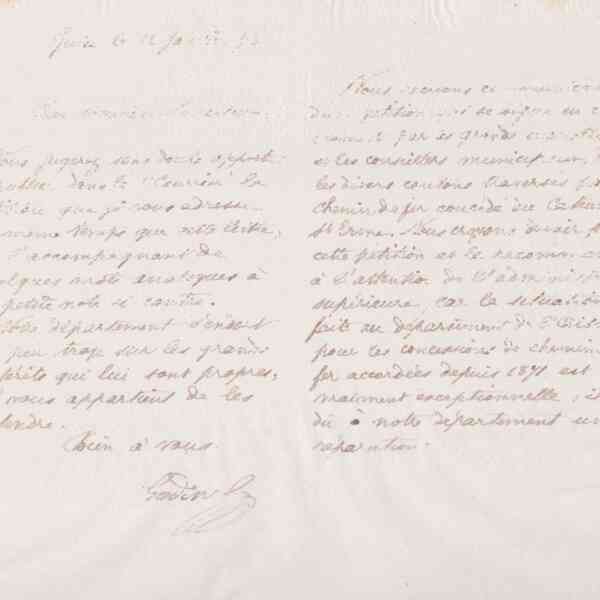 Guise le 12
Mon
Vous jugerez sans doute opport
publier dans le "Courrier" la
que je vous adresse
même temps que cette lettre,
l'accompagnant de
quelques mots analogues à
petite note ci contre.
Notre département s'endort
peu trop sur les grands
intérêts qui lui sont propres,
nous appartient de les
défendre.
Bien à vous
Godin
Nous recevons communica
d'une pétition qui se signe en ce
moment par les grands
et les conseillers municipaux,
les divers cantons traversés par
chemin de fer concédé du Cateau
St Erme. Nous croyons devoir
cette pétition et la recomm
à l'attention de l'administ
supérieure car la situation
faite au département de l'Aisne
pour les concessions de chemin
fer accordées depuis 1871 est
vraiment exceptionnelle; il
dû à notre département un
réparation.